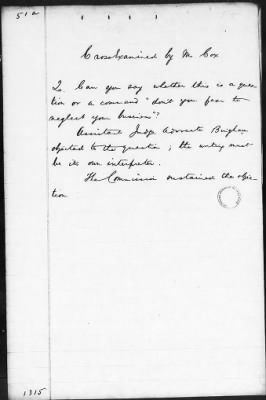 51a
Cross Examined by Mr Cox
Q. Can you say whether this is a ques
tion or a command "don't you fear to
neglect your business"?
Assistant Judge Advocate Bingham
objected to the question; the writing must
be its own interpreter.
The Commission sustained the objec
tion
1315